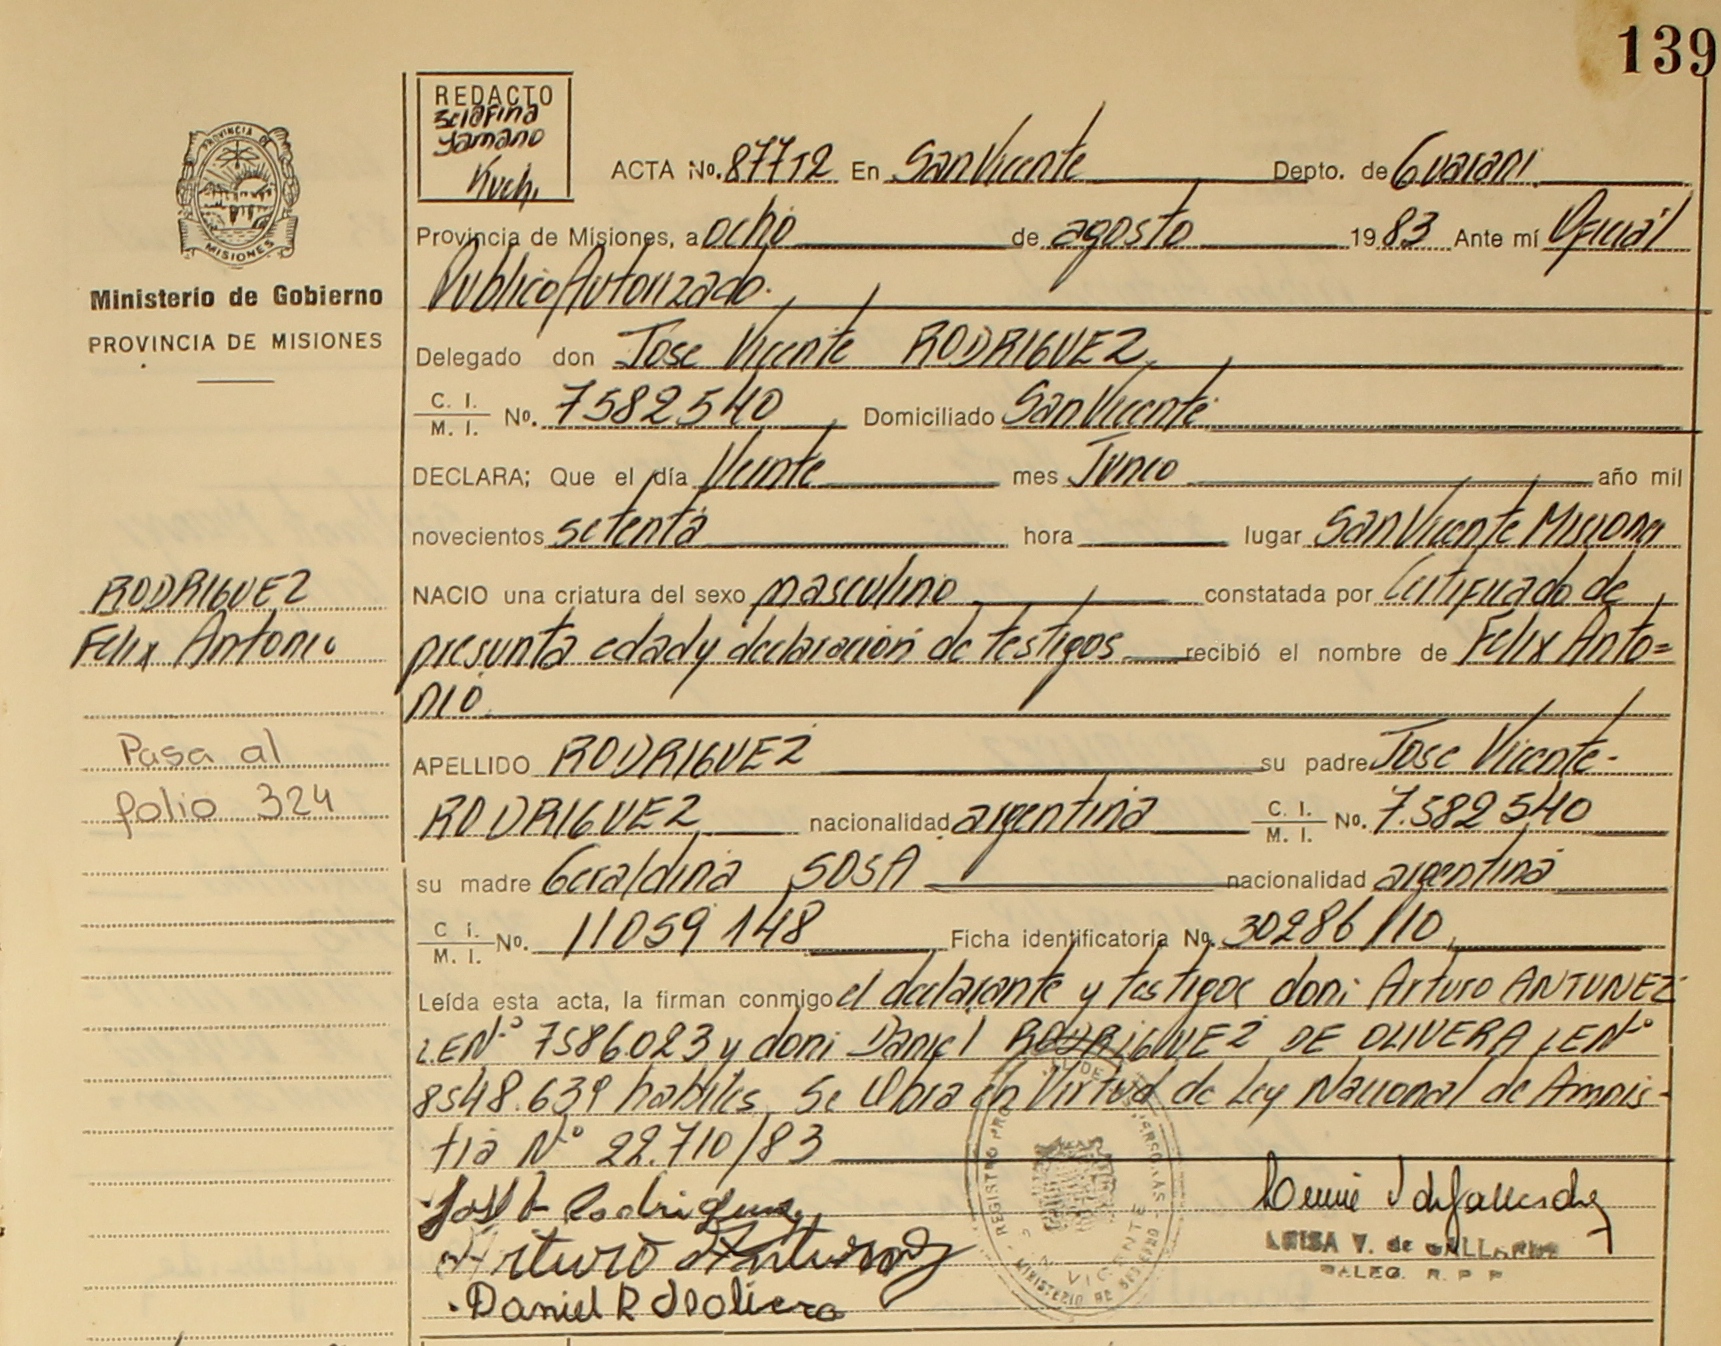 139
REDACTO
Yamano
Kuch.
ACTA No. 87712 En San Vicente Depto. de Guarani
PROVINCIA DE
MISIONES
Provincia de Misiones, a ocho de agosto 1983 Ante mí Oficial
Publico Autorizado.
Ministerio de Gobierno
PROVINCIA DE MISIONES
Delegado don Jose Vicente RODRIGUEZ
C. I.
M. I. No. 7582540 Domiciliado San Vicente
DECLARA; Que el día Veinte mes Junio año mil
novecientos setenta hora lugar San Vicente Misiones
NACIO una criatura del sexo masculino constatada por Certificado de
presunta edad y declaracion de testigos recibió el nombre de Felix Anto=
nio
RODRIGUEZ
Felix Antonio
Pasa al
folio 324
APELLIDO RODRIGUEZ su padre Jose Vicente
RODRIGUEZ nacionalidad argentina C. I.
M. I. No. 7.582540
su madre Geraldina SOSA nacionalidad argentina
C. I.
M. I. No. 11059148 Ficha identificatoria No. 30286/10
Leída esta acta, la firman conmigo el declarante y testigos don: Arturo ANTUNEZ
LEN° 7586.023 y don: Daniel RODRIGUEZ DE OLIVERA LEN°
8548.639 habiles. Se labra en Virtud de Ley Nacional de Amnis-
tia N° 22.710/83
Jose V Rodriguez
Arturo Antunez
Daniel R d Olivera
LUISA V. de GALLARDO
DALEG. R. P. P.